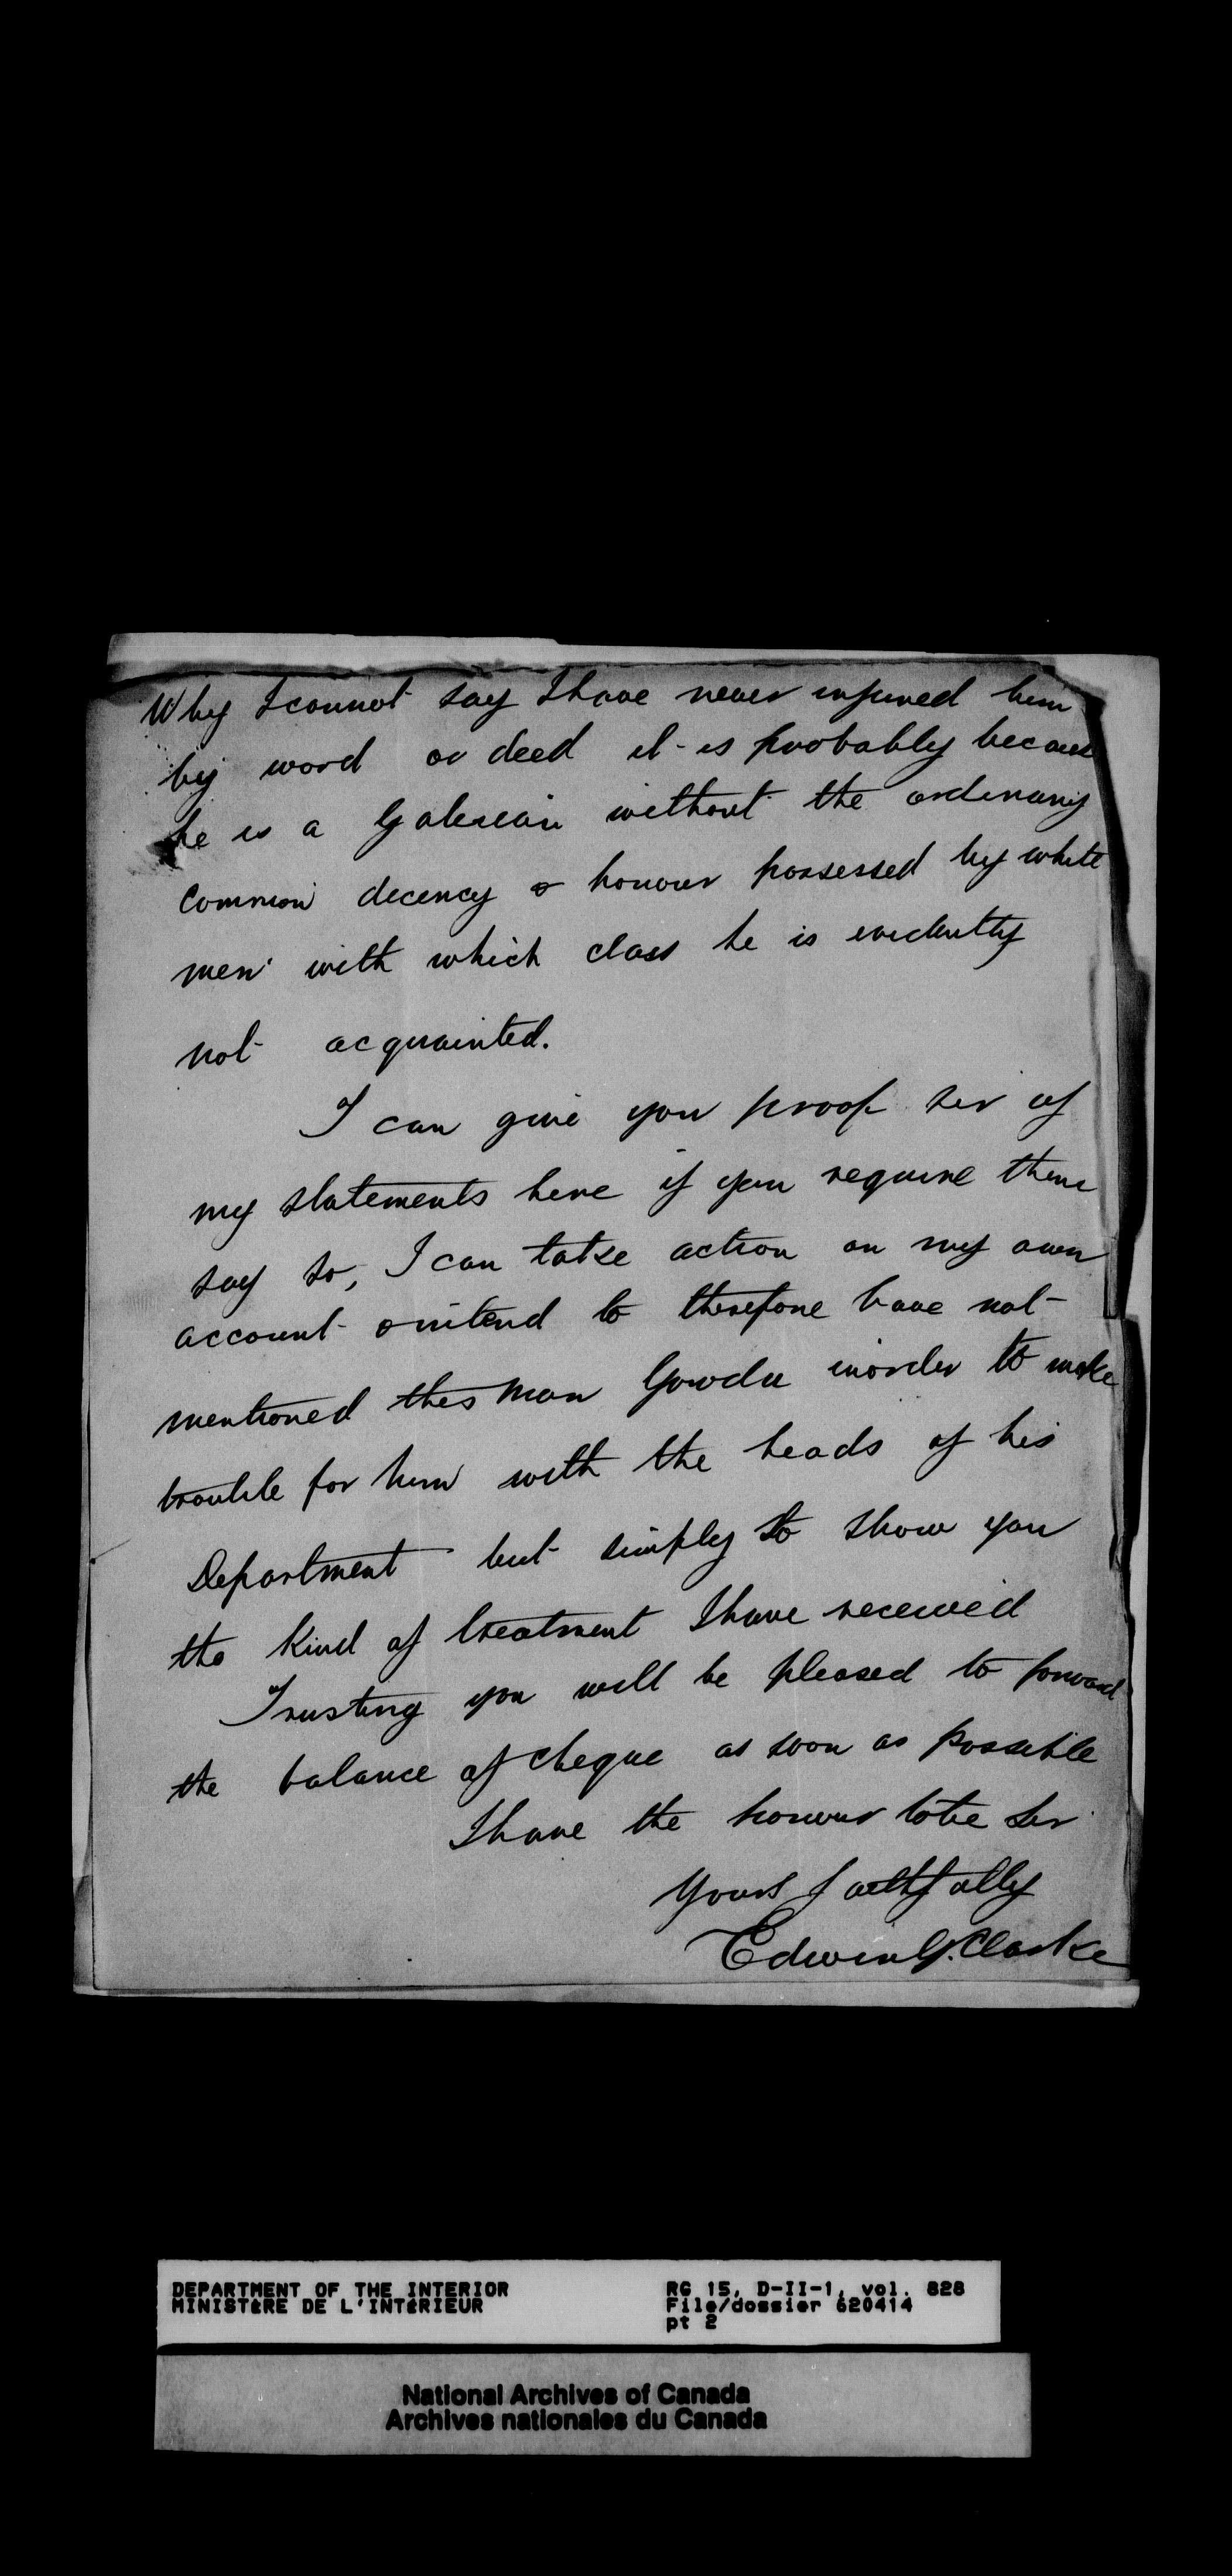 Why I cannot say I have never injured him
by word or deed it is probably because
he is a Galician without the ordinary
common decency & honour possessed by white
men with which class he is evidently
not acquainted.
I can give you proof sir of
my statements here if you require them
say so, I can take action on my own
account & intend to therefore have not
mentioned this man Gowda inorder to make
trouble for him with the heads of his
Department but simply to show you
the kind of treatment I have received
Trusting you will be pleased to forward
the balance of cheque as soon as possible
I have the honour to be Sir
Yours faithfully
Edwin G. Clarke
DEPARTMENT OF THE INTERIOR RG 15, D-II-1, vol. 828
MINISTÈRE DE L'INTÉRIEUR File/dossier 620414
pt 2
National Archives of Canada
Archives nationales du Canada